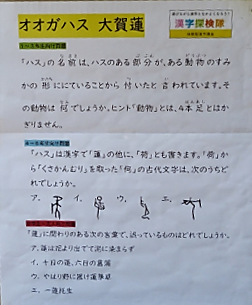 オオガハス 大賀蓮
漢字探検隊
「ハス」の名前は、ハスのある部分が、ある動物のすみ
かの形ににていることから付いたと言われています。そ
の動物は何でしょうか。ヒント「動物」とは、4本足とはか
ぎりません。
「ハス」は漢字で「蓮」の他に、「荷」とも書きます。「荷」か
ら「くさかんむり」を取った「何」の古代文字は、次のうちど
れでしょうか。
ア、 イ、 ウ、 エ、
「蓮」に関わりのある次の言葉で、誤っているものはどれでしょうか。
ア、蓮は泥より出でて泥に染まらず
イ、十日の菊、六日の菖蒲
ウ、やはり野に置け蓮華草
エ、一蓮托生